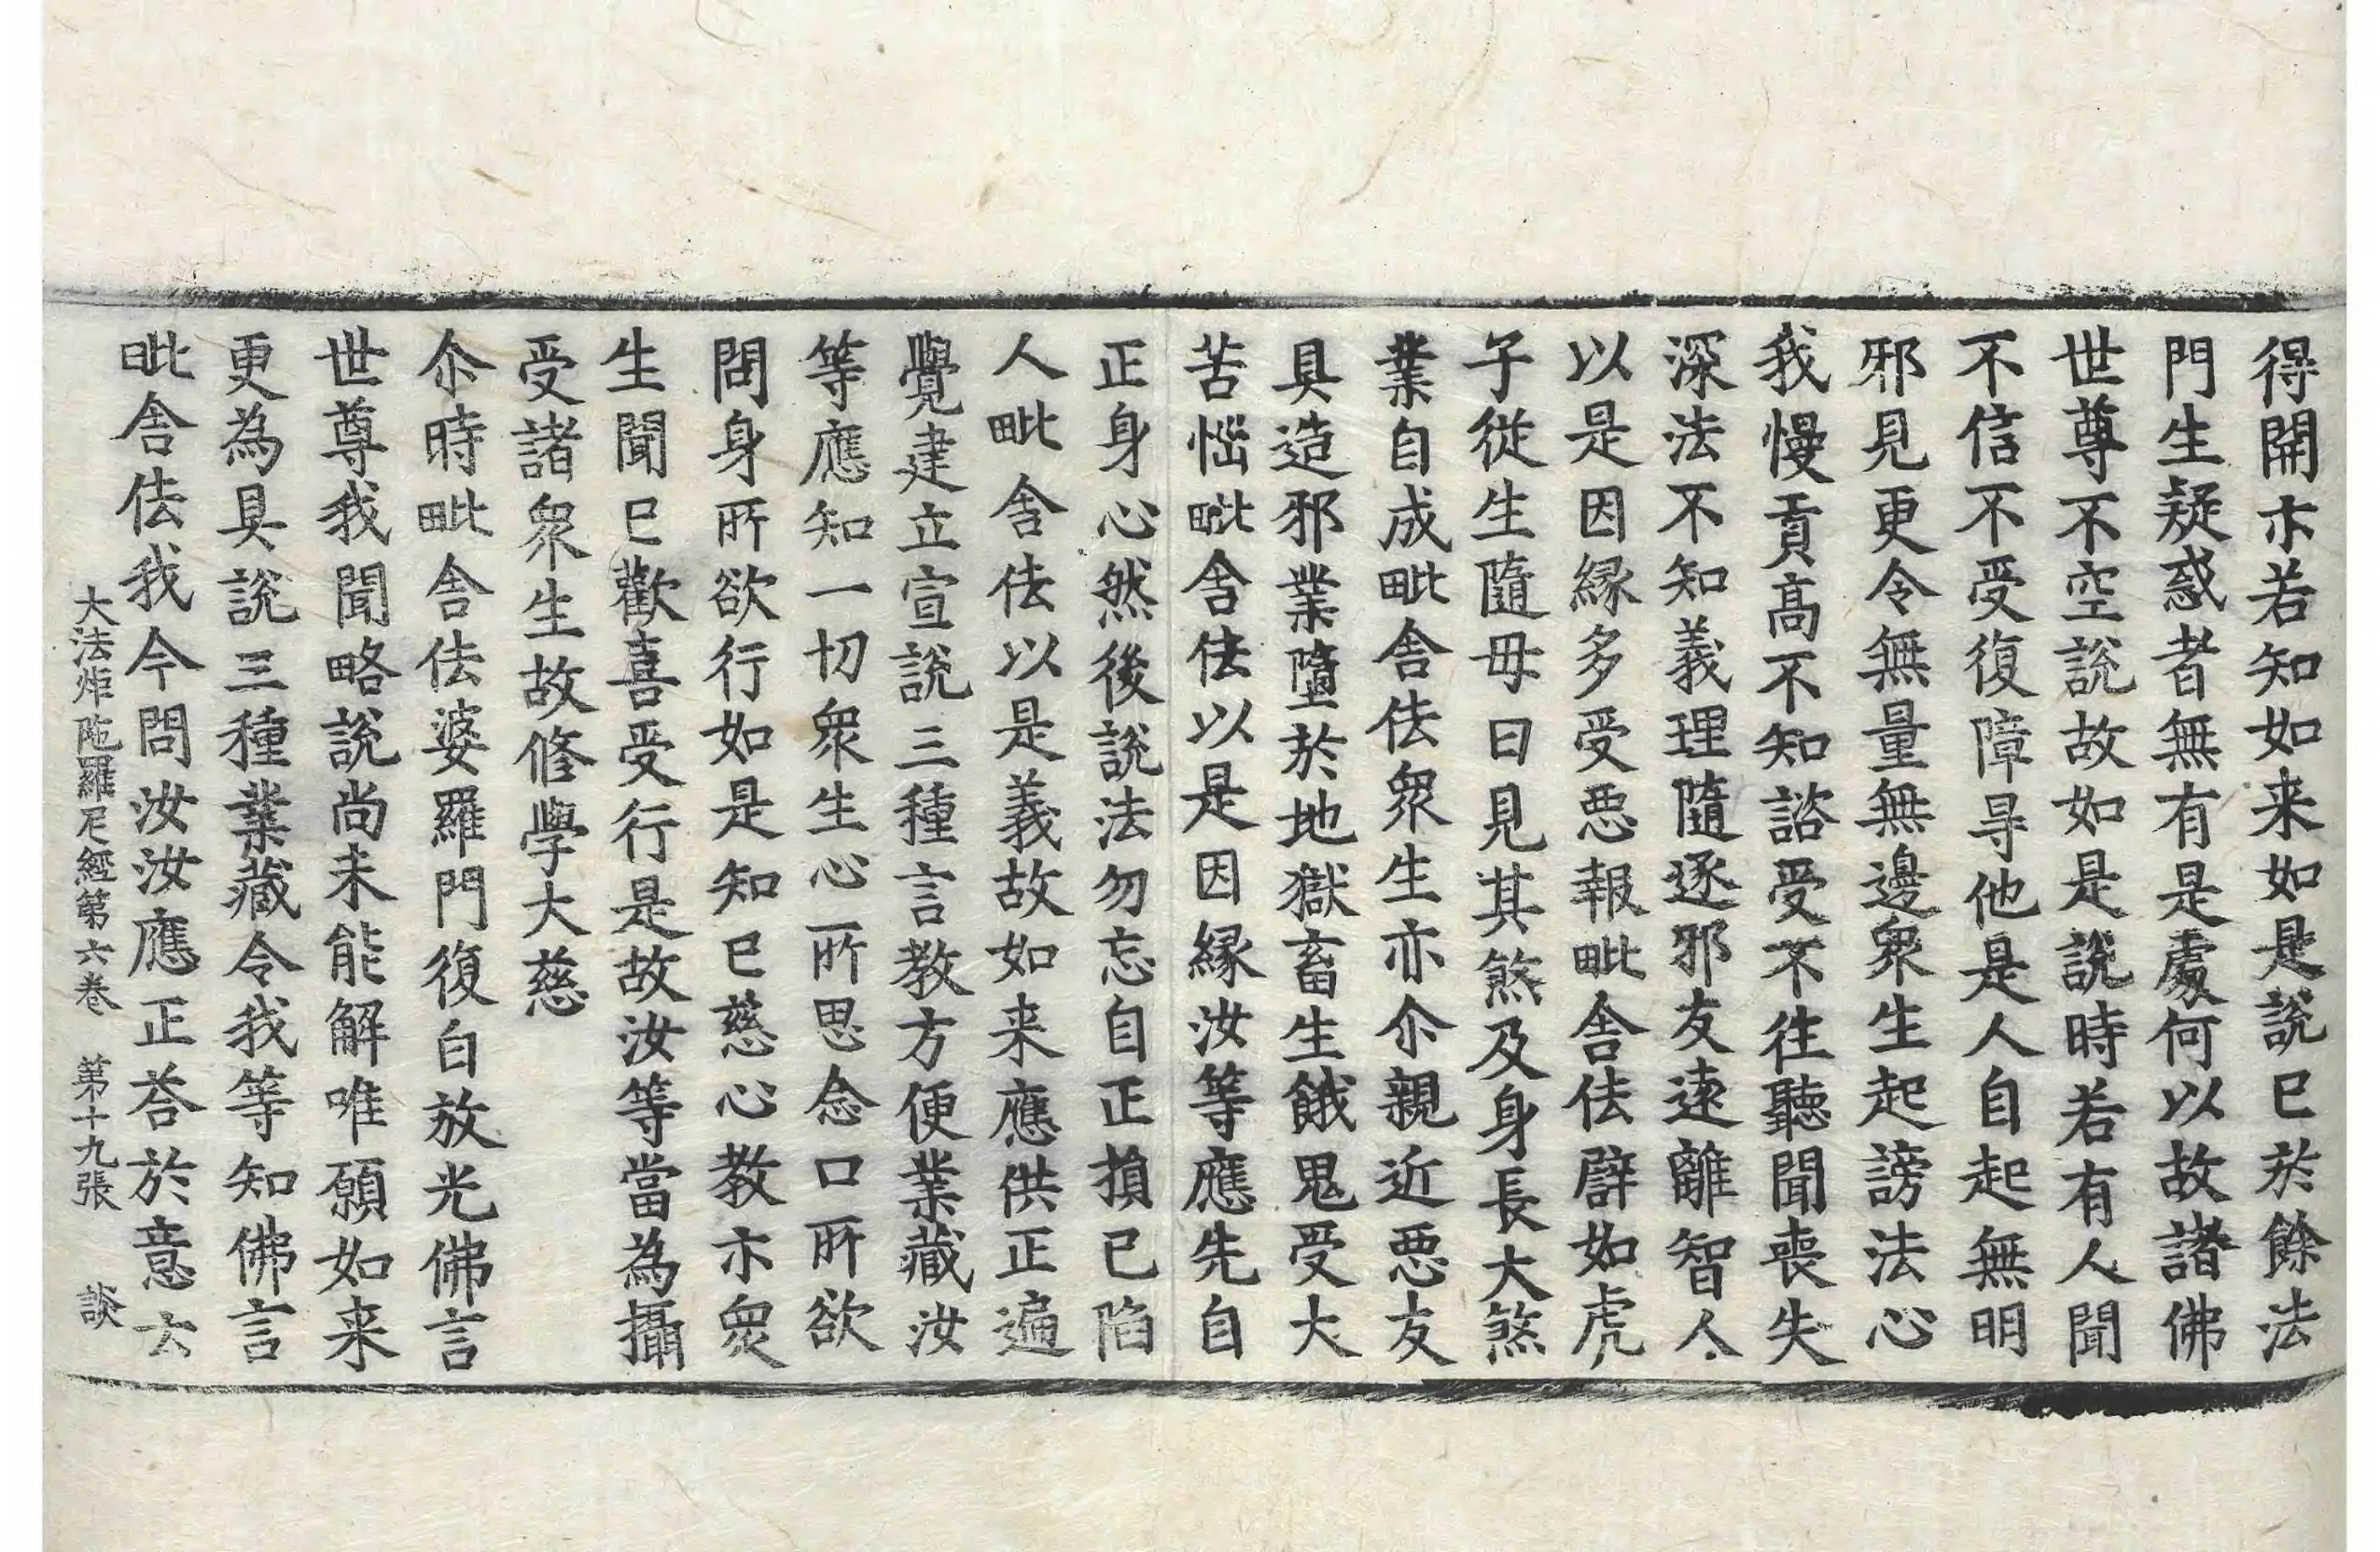 得開亦若知如来如是說已於餘法
門生疑惑者無有是處何以故諸佛
世尊不空說故如是說時若有人聞
不信不受復障㝵他是人自起無明
邪見更令無量無邊衆生起謗法心
我慢貢髙不知諮受不往聽聞喪失
深法不知義理隨逐邪友逺離智人
以是因縁多受惡報毗舍佉譬如虎
子從生隨母日見其煞及身長大煞
業自成毗舍佉衆生亦尒親近惡友
具造邪業墮於地獄畜生餓鬼受大
苦惱毗舍佉以是因縁汝等應先自
正身心然後說法勿忘自正損已陷
人毗舍佉以是義故如来應供正遍
覺建立宣說三種言教方便業藏汝
等應知一切衆生心所思念口所欲
問身所欲行如是知已慈心教示衆
生聞已歡喜受行是故汝等當為攝
受諸衆生故修學大慈
尒時毗舍佉婆羅門復白放光佛言
世尊我聞略說尚未能解唯願如来
更為具說三種業藏令我等知佛言
毗舍佉我今問汝汝應正荅於意云
大法炬陁羅尼經第六卷　第十九張　談